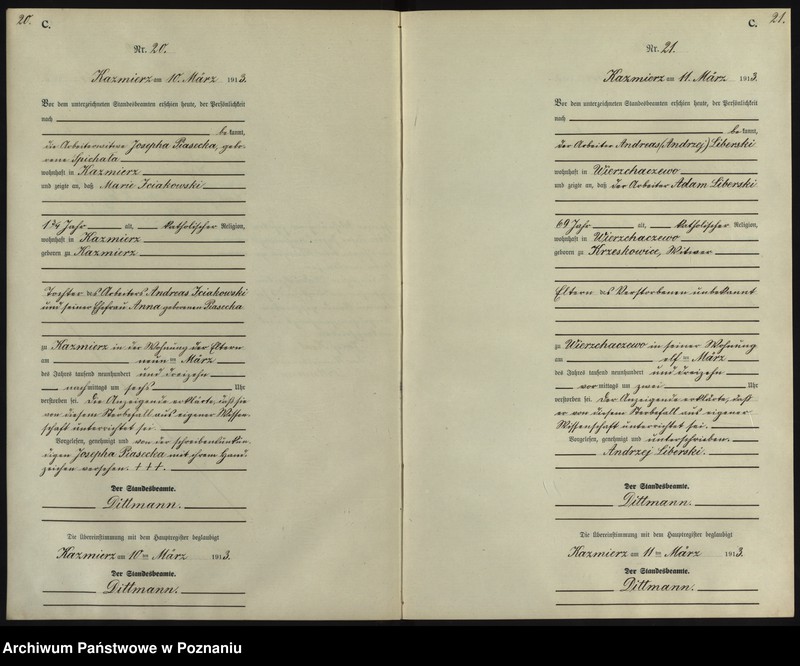 20.
C.
Nr. 20.
Kazmierz am 10. März 1913.
Vor dem unterzeichneten Standesbeamten erschien heute, der Persönlichkeit
nach
be kannt,
die Arbeiterwitwe Josepha Piasecka, gebo-
rene Spichala
wohnhaft in Kazmierz
und zeigte an, daß Marie Iciakowski
1 3/4 Jahr alt, katholischer Religion,
wohnhaft in Kazmierz
geboren zu Kazmierz
Tochter des Arbeiters Andreas Iciakowski
und seiner Ehefrau Anna geborenen Piasecka
zu Kazmierz in der Wohnung der Eltern
am neunten März
des Jahres tausend neunhundert und dreizehn
nach mittags um sechs Uhr
verstorben sei. Die Anzeigende erklärte, daß sie
von diesem Sterbefall aus eigener Wissen-
schaft unterrichtet sei.
Vorgelesen, genehmigt und von der schreibensunkun-
digen Josepha Piasecka mit ihrem Hand
zeichen versehen. + + +.
Der Standesbeamte.
Dittmann.
Die Übereinstimmung mit dem Hauptregister beglaubigt
Kazmierz am 10ten März 1913.
Der Standesbeamte.
Dittmann.
21.
C.
Nr. 21.
Kazmierz am 11. März 1913.
Vor dem unterzeichneten Standesbeamten erschien heute, der Persönlichkeit
nach
be kannt,
der Arbeiter Andreas (Andrzej) Liberski
wohnhaft in Wierzchaczewo
und zeigte an, daß der Arbeiter Adam Liberski
69 Jahr alt, katholischer Religion,
wohnhaft in Wierzchaczewo
geboren zu Krzeskowice, Witwer
Eltern des Verstorbenen unbekannt
zu Wierzchaczewo in seiner Wohnung
am elften März
des Jahres tausend neunhundert und dreizehn
vor mittags um zwei Uhr
verstorben sei. Der Anzeigende erklärte, daß
er von diesem Sterbefall aus eigener
Wissenschaft unterrichtet sei.
Vorgelesen, genehmigt und unterschrieben.
Andrzej Liberski.
Der Standesbeamte.
Dittmann.
Die Übereinstimmung mit dem Hauptregister beglaubigt
Kazmierz am 11ten März 1913.
Der Standesbeamte.
Dittmann.
Archiwum Państwowe w Poznaniu